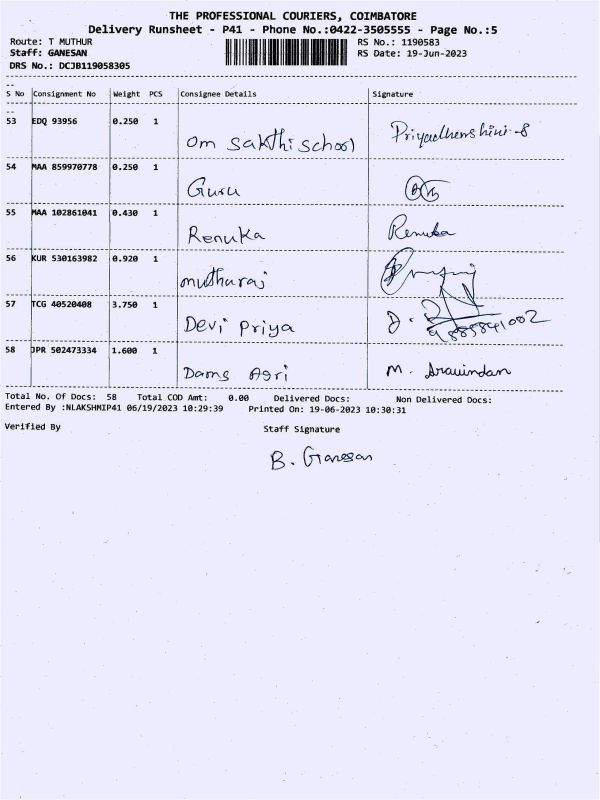 THE PROFESSIONAL COURIERS, COIMBATORE
Delivery Runsheet - P41 - Phone No.:0422-3505555 - Page No.:5
Route: T MUTHUR RS No.: 1190583
Staff: GANESAN RS Date: 19-Jun-2023
DRS No.: DCJB119058305
S No Consignment No Weight PCS Consignee Details Signature
53 EDQ 93956 0.250 1
Om Sakthi School
54 MAA 859970778 0.250 1
Guru
55 MAA 102861041 0.430 1
Renuka Renuka
56 KUR 530163982 0.920 1
muthuraj
57 TCG 40520408 3.750 1
Devi Priya D.
58 JPR 502473334 1.600 1
Dams Agri M. Aravindan
Total No. Of Docs: 58 Total COD Amt: 0.00 Delivered Docs: Non Delivered Docs:
Entered By :NLAKSHMIP41 06/19/2023 10:29:39 Printed On: 19-06-2023 10:30:31
Verified By Staff Signature
B. Ganesan